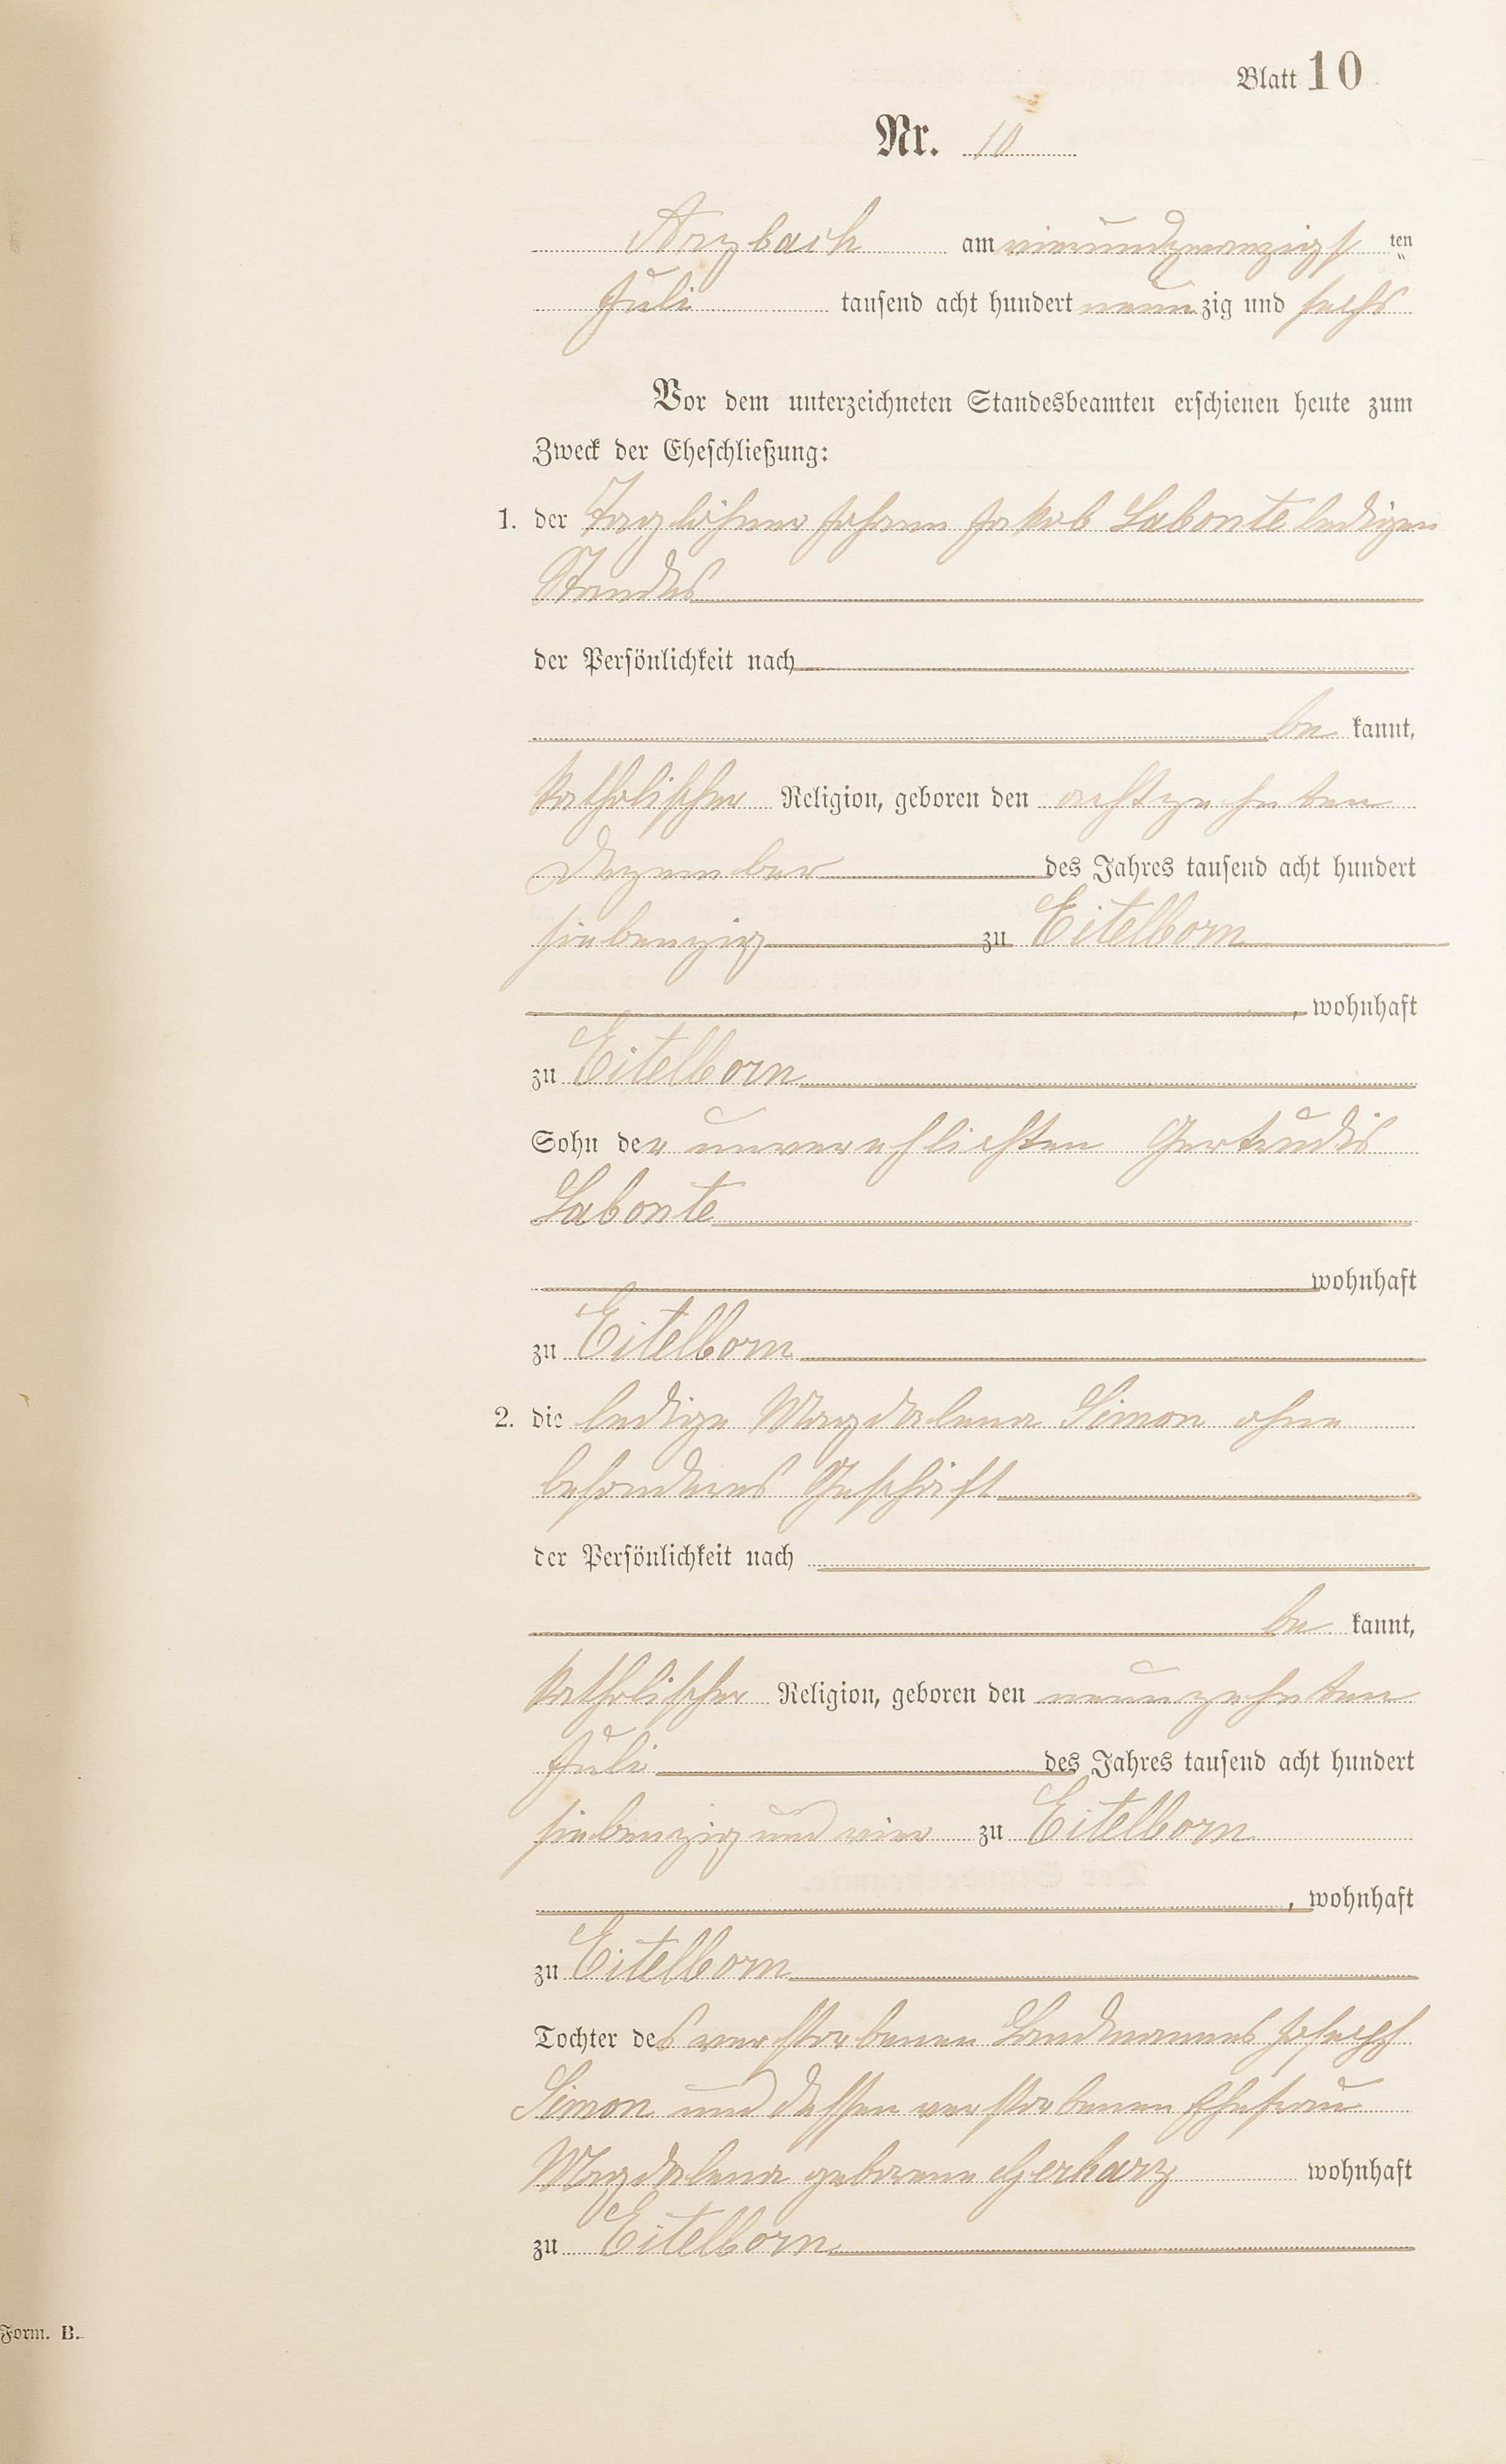 Blatt 10
Nr. 10
Arzbach am vierundzwanzigst ten
Juli tausend acht hundert neunzig und sechs
Vor dem unterzeichneten Standesbeamten erschienen heute zum
Zweck der Eheschließung:
1. der Taglöhner Johann Jakob Labonte ledigen
Standes
der Persönlichkeit nach
be kannt,
katholischer Religion, geboren den achtzehnten
Dezember des Jahres tausend acht hundert
siebenzig zu Eitelborn
, wohnhaft
zu Eitelborn
Sohn der unverehlichten Gertrudis
Labonte
wohnhaft
zu Eitelborn
2. die ledige Magdalena Simon ohne
besonderes Geschäft
der Persönlichkeit nach
be kannt,
katholischer Religion, geboren den neunzehnten
Juli des Jahres tausend acht hundert
siebenzig und vier zu Eitelborn
, wohnhaft
zu Eitelborn
Tochter des verstorbenen Landmannes Joseph
Simon und dessen verstorbenen Ehefrau
Magdalena geborene Gerharz wohnhaft
zu Eitelborn
Form. B.